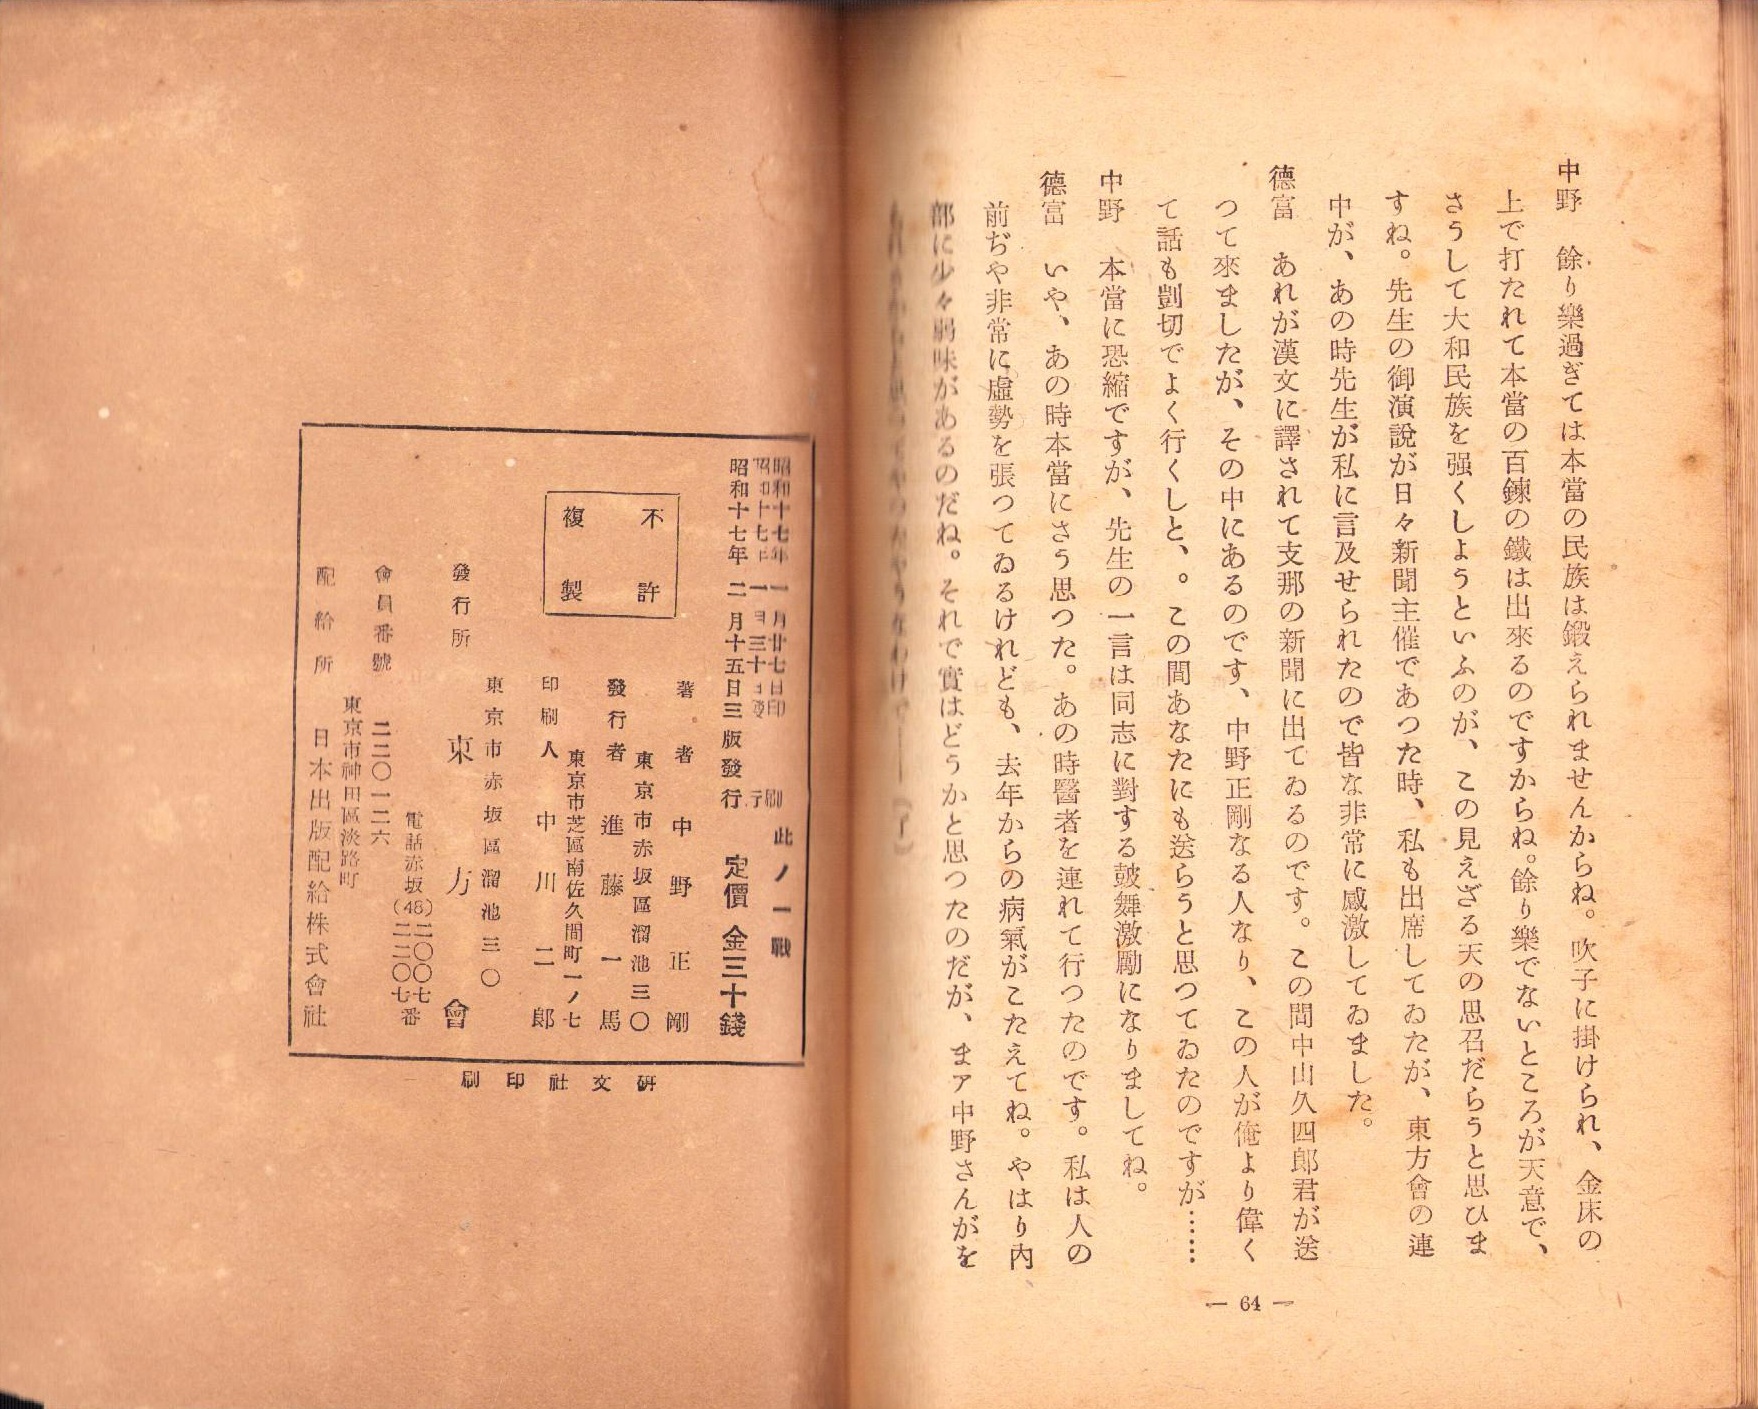 中野　餘り樂過ぎては本當の民族は鍛えられませんからね。吹子に掛けられ、金床の
上で打たれて本當の百鍊の鐵は出來るのですからね。餘り樂でないところが天意で、
さうして大和民族を强くしようといふのが、この見えざる天の思召だらうと思ひま
すね。先生の御演說が日々新聞主催であつた時、私も出席してゐたが、東方會の連
中が、あの時先生が私に言及せられたので皆な非常に感激してゐました。
德富　あれが漢文に譯されて支那の新聞に出てゐるのです。この間中山久四郎君が送
つて來ましたが、その中にあるのです、中野正剛なる人なり、この人が俺より偉く
て話も剴切でよく行くしと、。この間あなたにも送らうと思つてゐたのですが……
中野　本當に恐縮ですが、先生の一言は同志に對する鼓舞激勵になりましてね。
德富　いや、あの時本當にさう思つた。あの時醫者を連れて行つたのです。私は人の
前ぢや非常に虛勢を張つてゐるけれども、去年からの病氣がこたえてね。やはり內
部に少々弱味があるのだね。それで實はどうかと思つたのだが、まァ中野さんがを
（了）
— 64 —
昭和十七年一月廿七日印刷
昭和十七年一月三十日發行
昭和十七年二月十五日三版發行
此ノ一戰
定價金三十錢
不許
複製
著者　中野正剛
東京市赤坂區溜池三〇
發行者　進藤一馬
東京市芝區南佐久間町一ノ七
印刷人　中川二郎
東京市赤坂區溜池三〇
發行所　東方會
電話赤坂(48)二〇〇七
二二〇七番
會員番號　二二〇一二六
東京市神田區淡路町
配給所　日本出版配給株式會社
硏文社印刷